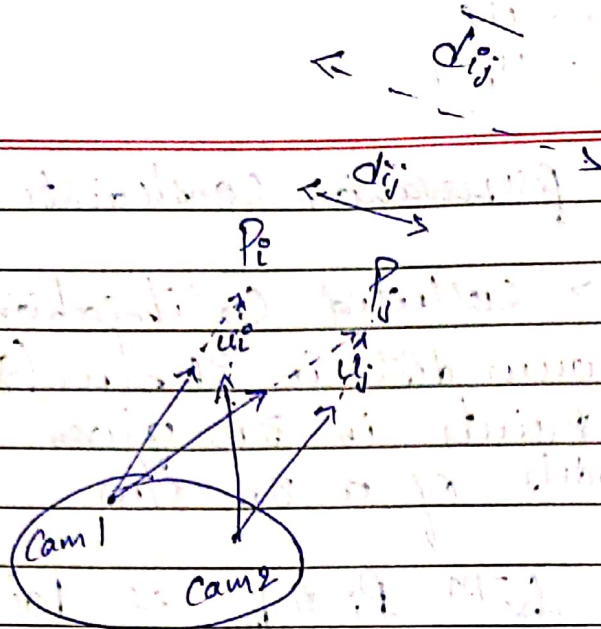 dij
dij
Pi
Pj
ui
uj
Cam 1
Cam 2